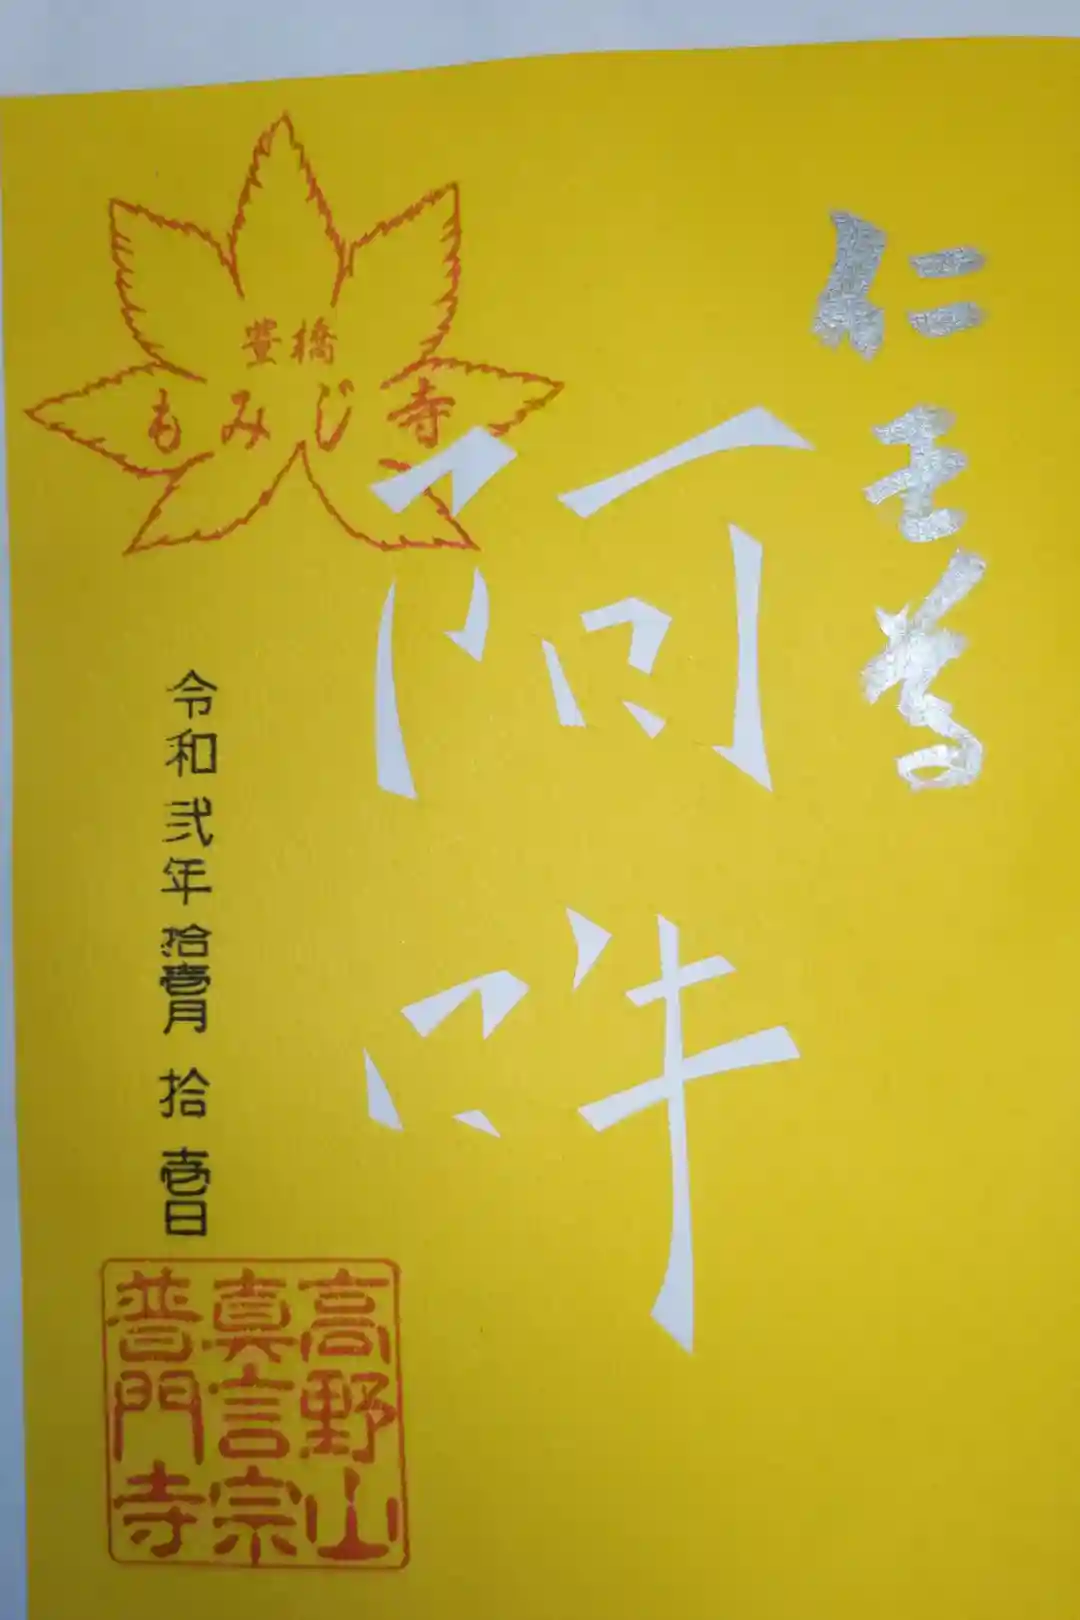 仁王尊
阿吽
豊橋
もみじ寺
令和弐年拾壹月拾壱日
高野山
真言宗
普門寺